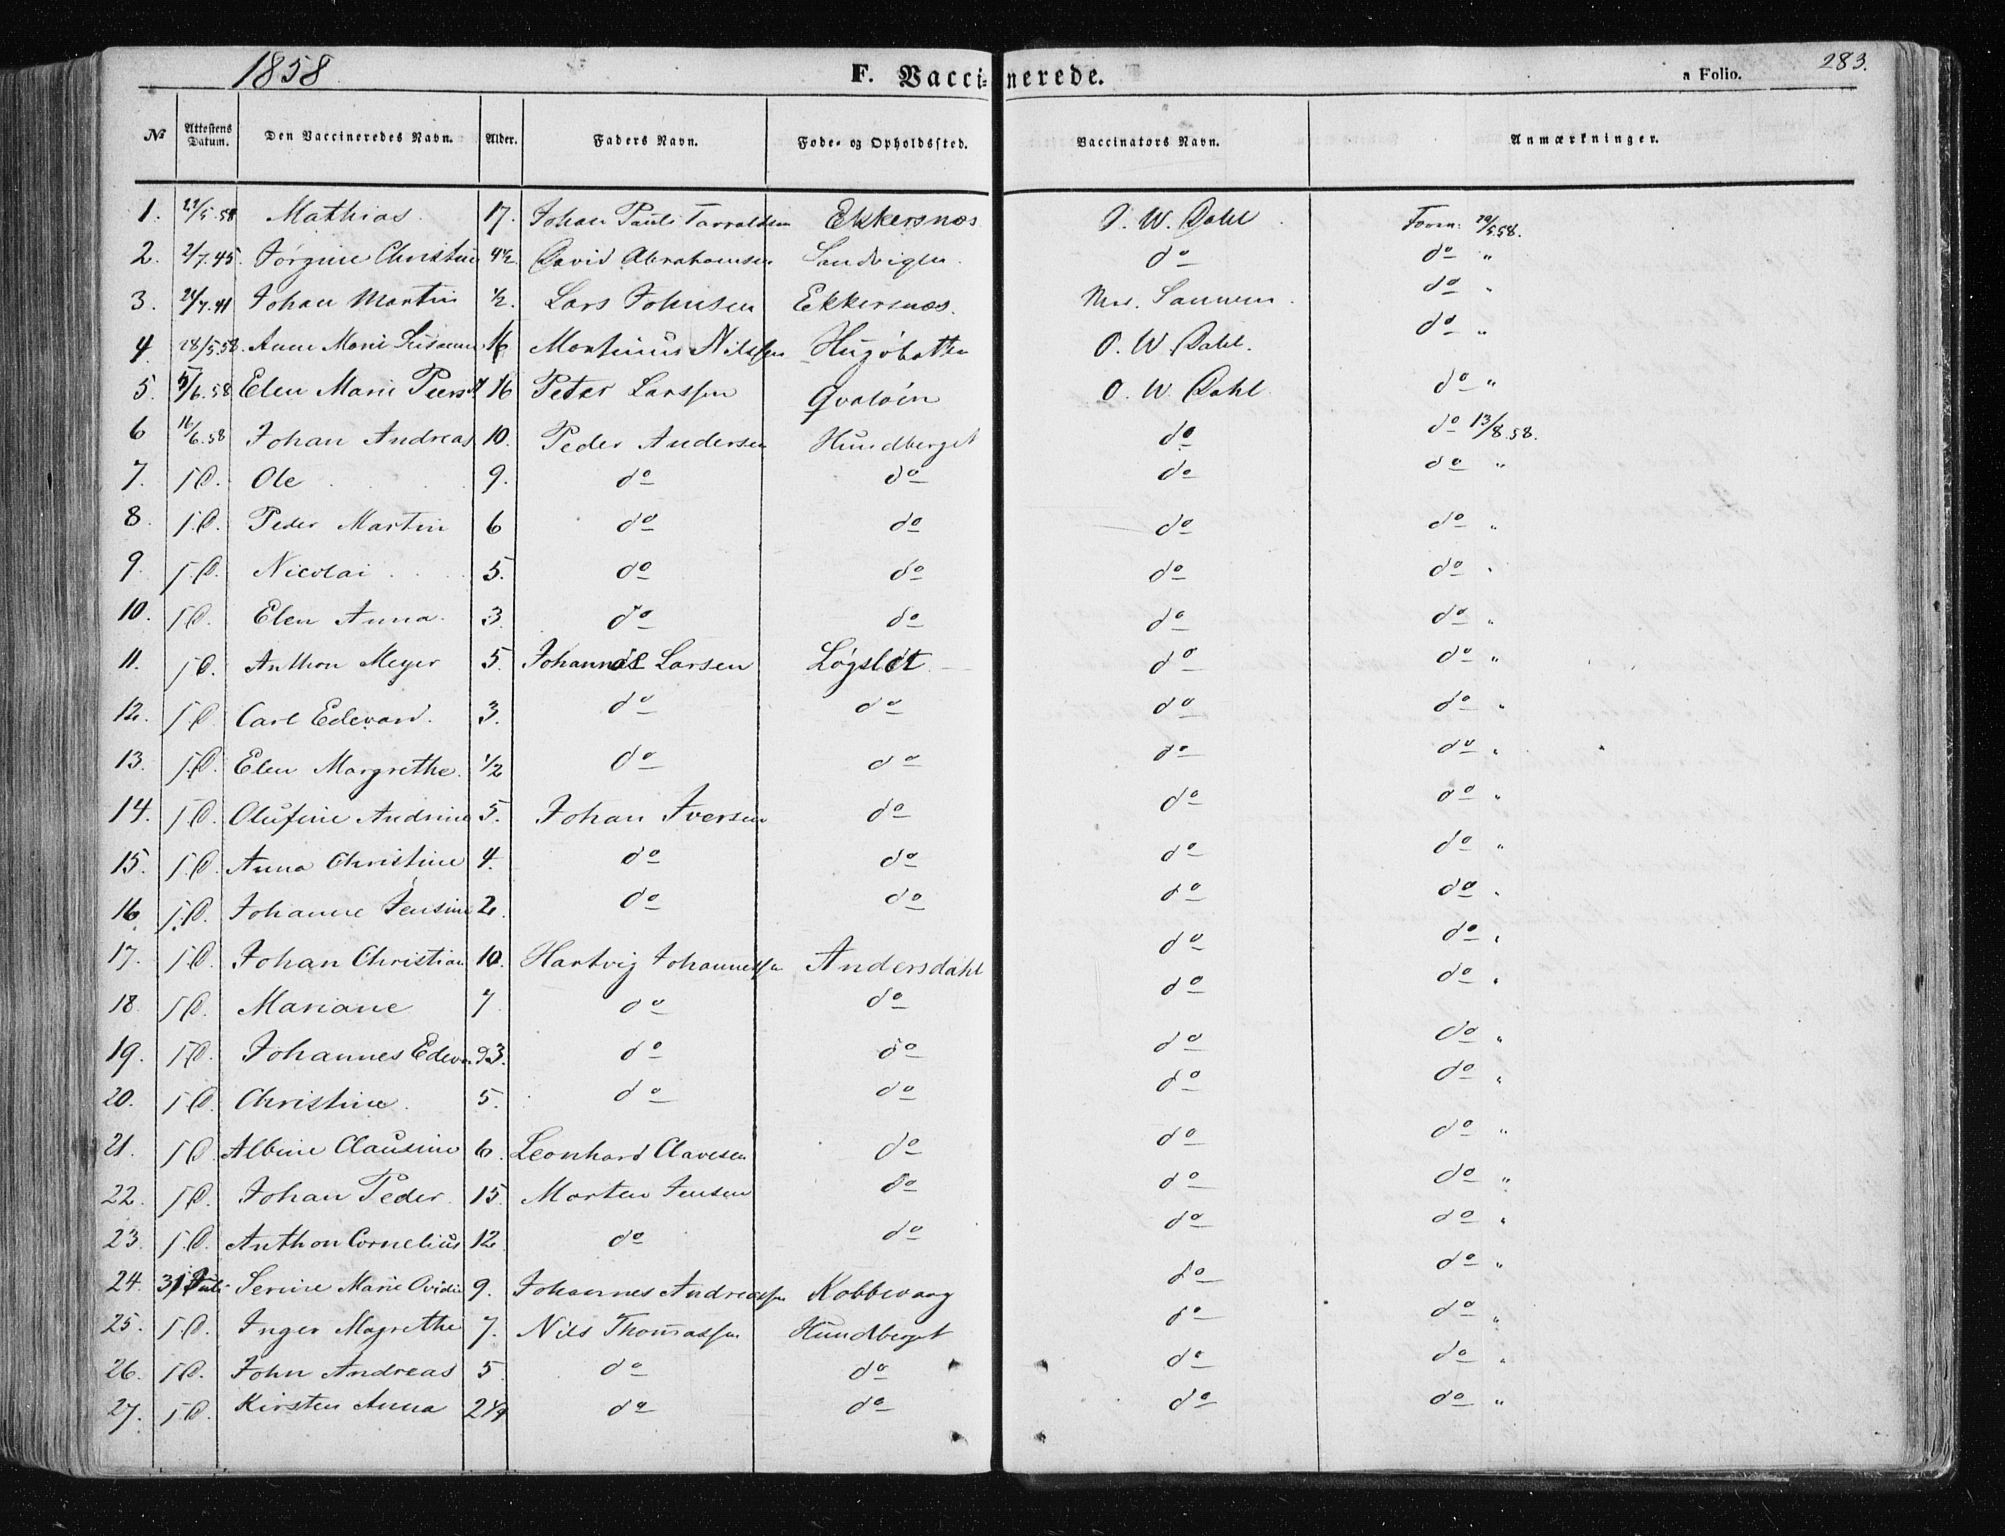 1858
F. Vaccinerede.
a Folio. 283.
№ Attestens Datum. Den Vaccineredes Navn. Alder. Faders Navn. Føde- og Opholdssted. Vaccinators Navn. Anmærkninger.
1. Mathias. 17. Johan Pauli Ekkersnæs O. W. Dahl Foren: 29/5.58.
2. 2/7.45. Jørgine Christine 4½. David Abrahamsen Sandvigen. do do "
3. 24/7.41 Johan Martin ½. Lars Johnsen Ekkersnæs. do "
4. 28/5.58. Anne Marie 16 Martinus Nilssen O. W. Dahl. do "
5. 5/6.58 Elen Marie 16 Peter Larssen Qvaløen O. W. Dahl. do "
6 16/6.58 Johan Andreas 10. Peder Andersen Hundberget do do 13/8.58.
7. J.D. Ole 9. do do do do "
8. J.D. Peder Martin 6 do do do do "
9. J.D. Nicolai 5. do do do do "
10. J.D. Elen Anna. 3. do do do do "
11. J.D. Anthon Meyer 5. Johannes Larsen Løgslet do do "
12. J.D. Carl Edevard. 3. do do do do "
13. J.D. Elen Margrethe. ½ do do do do "
14. J.D. Olufine Andrine 5. Johan Iversen do do do "
15. J.D. Anna Christine 4. do do do do "
16. J.D. Johanne Jensine 2. do do do do "
17. J.D. Johan Christian 10. Hartvig Johannessen Andersdahl do do "
18. J.D. Mariane 7 do do do do "
19. J.D. Johannes Edevard 3. do do do do "
20. J.D. Christine. 5. do do do do "
21. J.D. Albine Clausine 6. Leonhard Clavesen do do do "
22. J.D. Johan Peder. 15. Morten Jensen do do do "
23. J.D. Anthon Cornelius 12. do do do do "
24. 31 Juli Serine Marie Ovidie 9. Johannes Andreassen Kobbevaag do do "
25. J.D. Inger Magrethe 7. Nils Thomassen Hundberget do do "
26. J.D. John Andreas 5 do do do do "
27. J.D. Kirsten Anna do do do do "